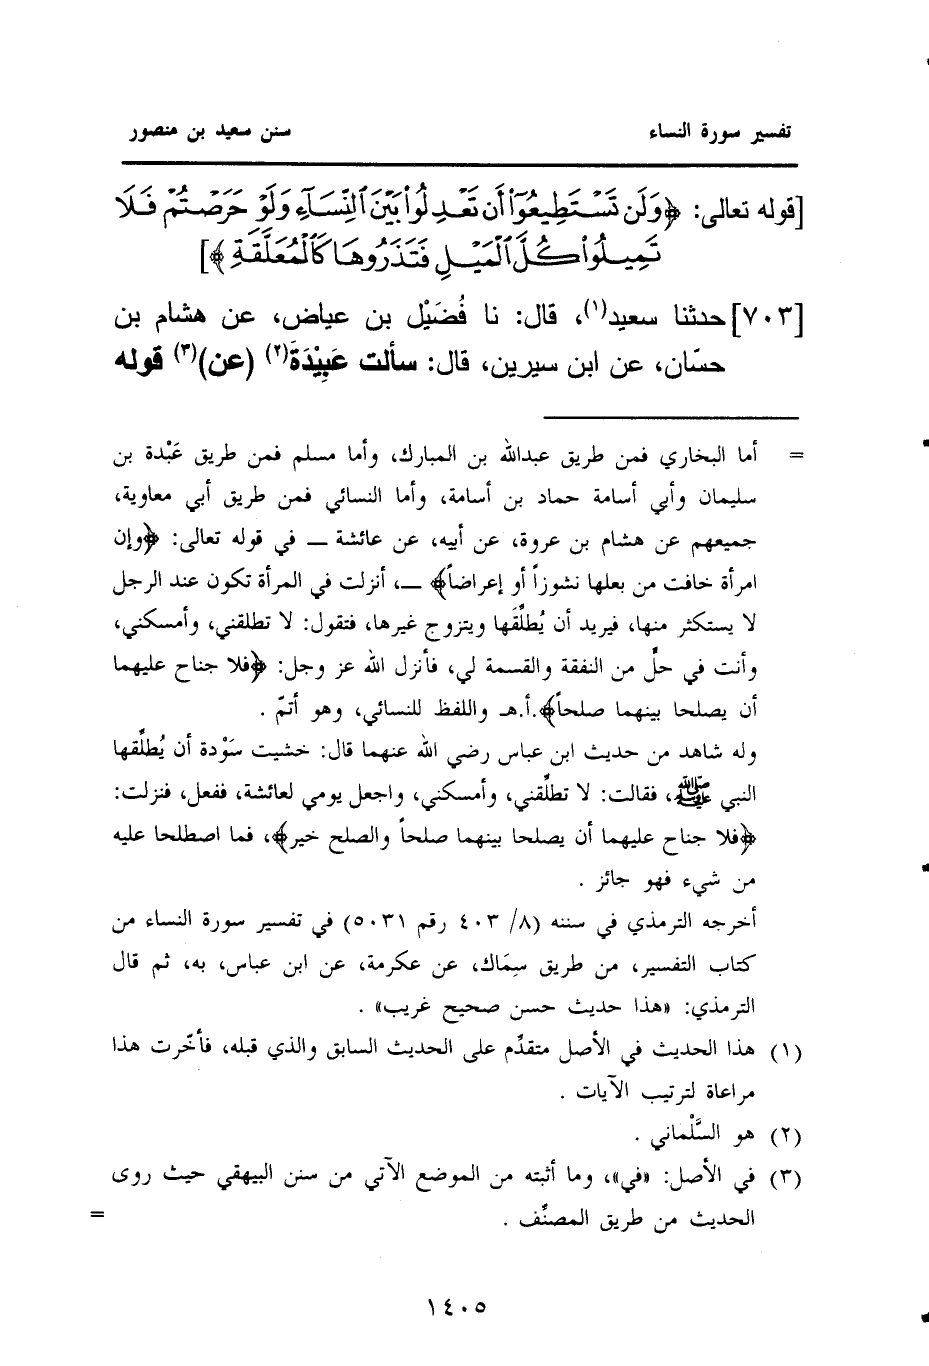 تفسير سورة النساء
سنن سعيد بن منصور
[قوله تعالى: ﴿وَلَن تَسْتَطِيعُوٓا۟ أَن تَعْدِلُوا۟ بَيْنَ ٱلنِّسَآءِ وَلَوْ حَرَصْتُمْ فَلَا
تَمِيلُوا۟ كُلَّ ٱلْمَيْلِ فَتَذَرُوهَا كَٱلْمُعَلَّقَةِ﴾]
[٧٠٣] حدثنا سعيد(١)، قال: نا فُضَيْل بن عياض، عن هشام بن
حسّان، عن ابن سيرين، قال: سألت عَبِيْدَةَ(٢) (عن)(٣) قوله
= أما البخاري فمن طريق عبدالله بن المبارك، وأما مسلم فمن طريق عَبْدة بن
سليمان وأبي أسامة حماد بن أسامة، وأما النسائي فمن طريق أبي معاوية،
جميعهم عن هشام بن عروة، عن أبيه، عن عائشة ــ في قوله تعالى: ﴿وإن
امرأة خافت من بعلها نشوزاً أو إعراضاً﴾ ــ، أنزلت في المرأة تكون عند الرجل
لا يستكثر منها، فيريد أن يُطلِّقَها ويتزوج غيرها، فتقول: لا تطلقني، وأمسكني،
وأنت في حلٍّ من النفقة والقسمة لي، فأنزل الله عز وجل: ﴿فلا جناح عليهما
أن يصلحا بينهما صلحاً﴾.أ.هـ واللفظ للنسائي، وهو أتمّ .
وله شاهد من حديث ابن عباس رضي الله عنهما قال: خشيت سَوْدة أن يُطلِّقها
النبي ﷺ، فقالت: لا تطلِّقني، وأمسكني، واجعل يومي لعائشة، ففعل، فنزلت:
﴿فلا جناح عليهما أن يصلحا بينهما صلحاً والصلح خير﴾، فما اصطلحا عليه
من شيء فهو جائز .
أخرجه الترمذي في سننه (٨/ ٤٠٣ رقم ٥٠٣١) في تفسير سورة النساء من
كتاب التفسير، من طريق سِمَاك، عن عكرمة، عن ابن عباس، به، ثم قال
الترمذي: «هذا حديث حسن صحيح غريب» .
(١) هذا الحديث في الأصل متقدِّم على الحديث السابق والذي قبله، فأخّرت هذا
مراعاة لترتيب الآيات .
(٢) هو السَّلْماني .
(٣) في الأصل: «في»، وما أثبته من الموضع الآتي من سنن البيهقي حيث روى
الحديث من طريق المصنِّف . =
١٤٠٥